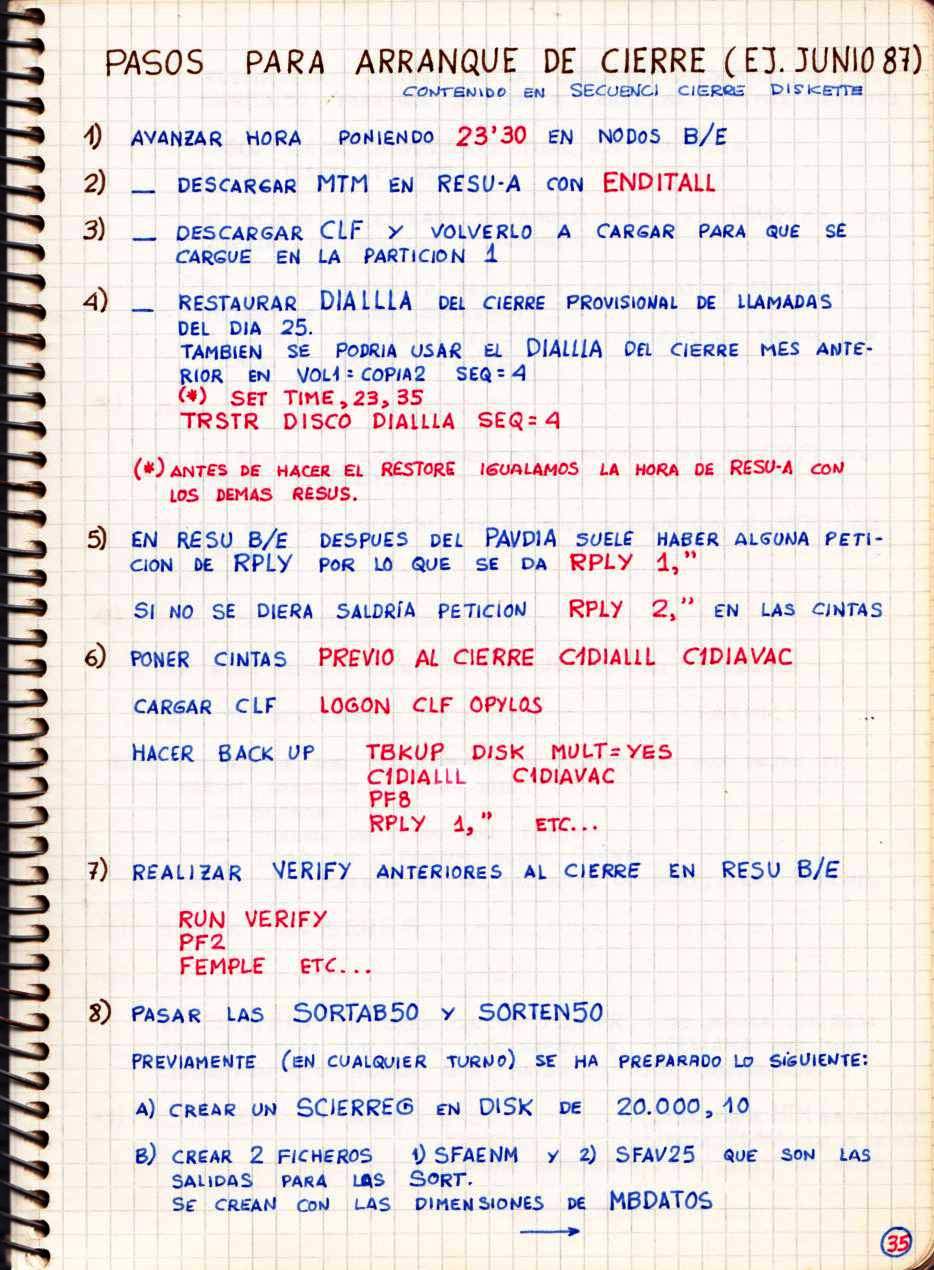 PASOS PARA ARRANQUE DE CIERRE (EJ. JUNIO 87)
CONTENIDO EN SECUENCI CIERRE DISKETTE
1) AVANZAR HORA PONIENDO 23'30 EN NODOS B/E
2) — DESCARGAR MTM EN RESU-A CON ENDITALL
3) — DESCARGAR CLF Y VOLVERLO A CARGAR PARA QUE SE
CARGUE EN LA PARTICION 1
4) — RESTAURAR DIALLLA DEL CIERRE PROVISIONAL DE LLAMADAS
DEL DIA 25.
TAMBIEN SE PODRIA USAR EL DIALLLA DEL CIERRE MES ANTE-
RIOR EN VOL1=COPIA2 SEQ=4
(*) SET TIME,23,35
TRSTR DISCO DIALLLA SEQ=4
(*) ANTES DE HACER EL RESTORE IGUALAMOS LA HORA DE RESU-A CON
LOS DEMAS RESUS.
5) EN RESU B/E DESPUES DEL PAVDIA SUELE HABER ALGUNA PETI-
CION DE RPLY POR LO QUE SE DA RPLY 1,"
SI NO SE DIERA SALDRÍA PETICION RPLY 2," EN LAS CINTAS
6) PONER CINTAS PREVIO AL CIERRE C1DIALLL C1DIAVAC
CARGAR CLF LOGON CLF OPYLOS
HACER BACK UP TBKUP DISK MULT=YES
C1DIALLL C1DIAVAC
PF8
RPLY 1," ETC...
7) REALIZAR VERIFY ANTERIORES AL CIERRE EN RESU B/E
RUN VERIFY
PF2
FEMPLE ETC...
8) PASAR LAS SORTAB50 Y SORTEN50
PREVIAMENTE (EN CUALQUIER TURNO) SE HA PREPARADO LO SIGUIENTE:
A) CREAR UN SCIERREG EN DISK DE 20.000,10
B) CREAR 2 FICHEROS 1) SFAENM Y 2) SFAV25 QUE SON LAS
SALIDAS PARA LAS SORT.
SE CREAN CON LAS DIMENSIONES DE MBDATOS
→
35